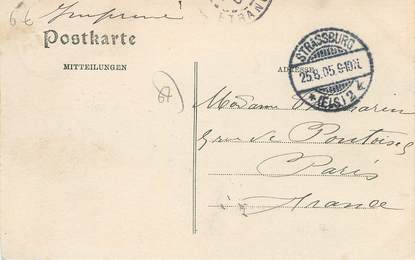 66 Imprimé
ETRAN
Postkarte
MITTEILUNGEN
ADRESSE
STRASSBURG
25.8.05. 9-10V.
* (ELS) 2 k
67
Madame
rue de Pontoise
Paris
France